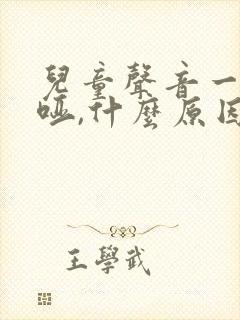 兒童聲音一
啞,什麼原因
王學武